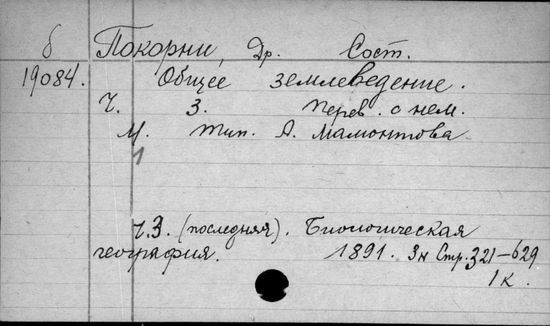 б Покорни, Др. Сост.
19084. Общее землеведение.
Ч. 3. Перев. с нем.
М. тип. А. Мамонтова
1
Ч.3. (последняя). Биологическая
география. 1891. Зн Стр. 321-629
1 к.